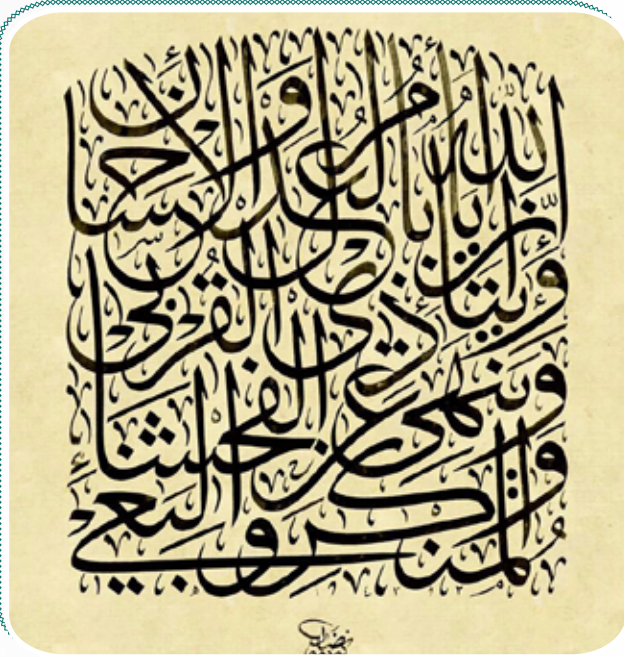 إن الله يأمر بالعدل والإحسان
وإيتائ ذي القربى
وينهى عن الفحشاء
والمنكر والبغي